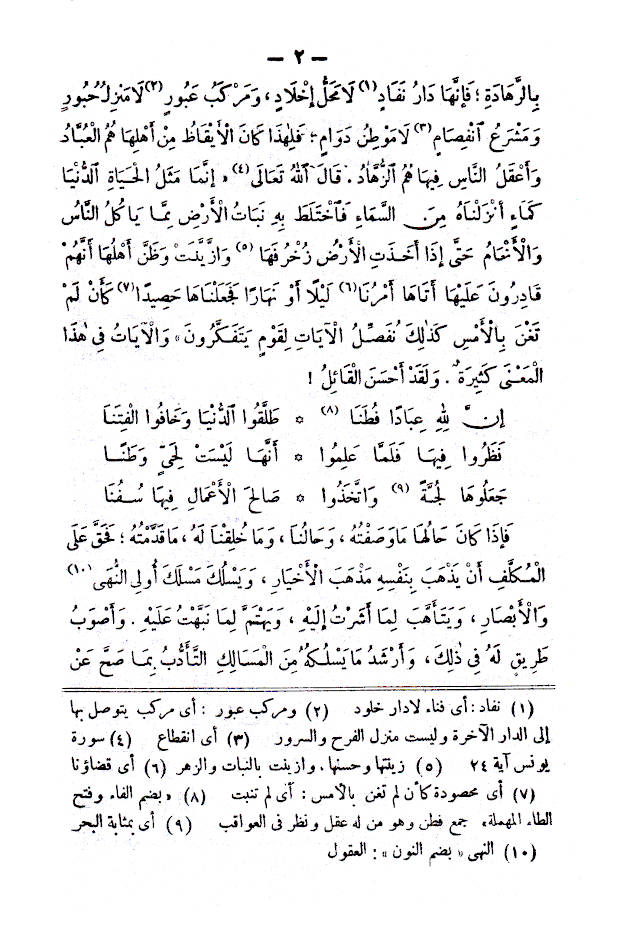 — ٢ —
بِالزَّهَادَةِ ؛ فَإِنَّهَا دَارُ نَفَادٍ (١) لَا مَحَلُّ إِخْلَادٍ ، وَمَرْكَبُ عُبُورٍ (٢) لَا مَنْزِلُ حُبُورٍ
وَمَشْرَعُ انْفِصَامٍ (٣) لَا مَوْطِنُ دَوَامٍ ؛ فَلِهٰذَا كَانَ الْأَيْقَاظُ مِنْ أَهْلِهَا هُمُ الْعُبَّادُ
وَأَعْقَلُ النَّاسِ فِيهَا هُمُ الزُّهَّادُ . قَالَ اللهُ تَعَالَى (٤) « إِنَّمَا مَثَلُ الْحَيَاةِ الدُّنْيَا
كَمَاءٍ أَنْزَلْنَاهُ مِنَ السَّمَاءِ فَاخْتَلَطَ بِهِ نَبَاتُ الْأَرْضِ مِمَّا يَأْكُلُ النَّاسُ
وَالْأَنْعَامُ حَتَّى إِذَا أَخَذَتِ الْأَرْضُ زُخْرُفَهَا (٥) وَازَّيَّنَتْ وَظَنَّ أَهْلُهَا أَنَّهُمْ
قَادِرُونَ عَلَيْهَا أَتَاهَا أَمْرُنَا (٦) لَيْلًا أَوْ نَهَارًا فَجَعَلْنَاهَا حَصِيدًا (٧) كَأَنْ لَمْ
تَغْنَ بِالْأَمْسِ كَذٰلِكَ نُفَصِّلُ الْآيَاتِ لِقَوْمٍ يَتَفَكَّرُونَ » وَالْآيَاتُ فِي هٰذَا
الْمَعْنَى كَثِيرَةٌ . وَلَقَدْ أَحْسَنَ الْقَائِلُ !
إِنَّ لِلهِ عِبَادًا فُطَنَا (٨) * طَلَّقُوا الدُّنْيَا وَخَافُوا الْفِتَنَا
نَظَرُوا فِيهَا فَلَمَّا عَلِمُوا * أَنَّهَا لَيْسَتْ لِحَيٍّ وَطَنَا
جَعَلُوهَا لُجَّةً (٩) وَاتَّخَذُوا * صَالِحَ الْأَعْمَالِ فِيهَا سُفُنَا
فَإِذَا كَانَ حَالُهَا مَا وَصَفْتُهُ ، وَحَالُنَا ، وَمَا خُلِقْنَا لَهُ ، مَا قَدَّمْتُهُ ؛ فَحَقَّ عَلَى
الْمُكَلَّفِ أَنْ يَذْهَبَ بِنَفْسِهِ مَذْهَبَ الْأَخْيَارِ ، وَيَسْلُكَ مَسْلَكَ أُولِي النُّهَى (١٠)
وَالْأَبْصَارِ ، وَيَتَأَهَّبَ لِمَا أَشَرْتُ إِلَيْهِ ، وَيَهْتَمَّ لِمَا نَبَّهْتُ عَلَيْهِ . وَأَصْوَبُ
طَرِيقٍ لَهُ فِي ذٰلِكَ ، وَأَرْشَدُ مَا يَسْلُكُهُ مِنَ الْمَسَالِكِ التَّأَدُّبُ بِمَا صَحَّ عَنْ
(١) نفاد : أى فناء لادار خلود (٢) ومركب عبور : أى مركب يتوصل بها
إلى الدار الآخرة وليست منزل الفرح والسرور (٣) أى انقطاع (٤) سورة
يونس آية ٢٤ (٥) زينتها وحسنها . وازينت بالنبات والزهر (٦) أى قضاؤنا
(٧) أى محصودة كأن لم تغن بالأمس : أى لم تنبت (٨) « بضم الفاء وفتح
الطاء المهملة » جمع فطن وهو من له عقل ونظر فى العواقب (٩) أى بمثابة البحر
(١٠) النهى « بضم النون » : العقول